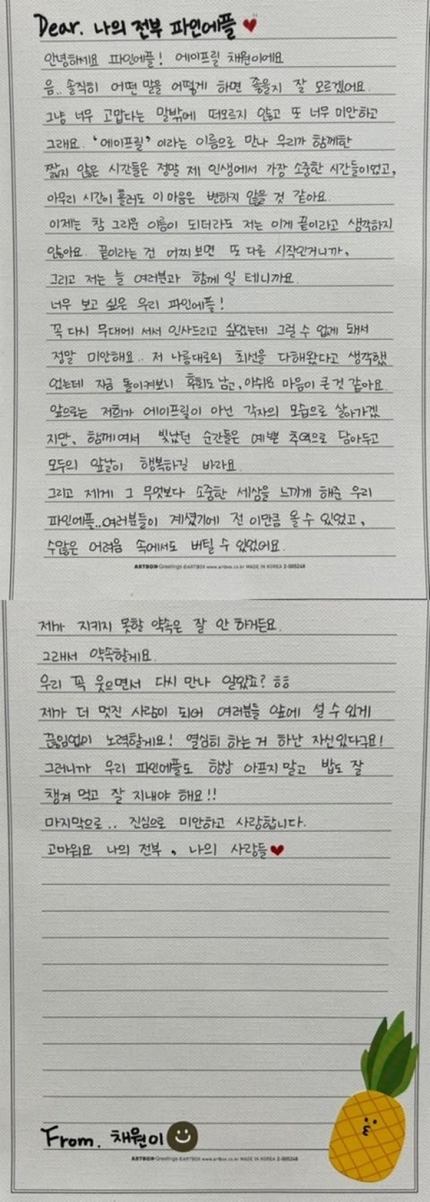 Dear. 나의 전부 파인에플 ♥
안녕하세요 파인에플! 에이프릴 채원이에요
음.. 솔직히 어떤 말을 어떻게 하면 좋을지 잘 모르겠어요.
그냥 너무 고맙다는 말밖에 떠오르지 않고 또 너무 미안하고
그래요. '에이프릴' 이라는 이름으로 만나 우리가 함께한
짧지 않은 시간들은 정말 제 인생에서 가장 소중한 시간들이었고,
아무리 시간이 흘러도 이 마음은 변하지 않을 것 같아요.
이제는 참 그리운 이름이 되더라도 저는 이게 끝이라고 생각하지
않아요. 끝이라는 건 어찌 보면 또 다른 시작인거니까,
그리고 저는 늘 여러분과 함께 일 테니까요.
너무 보고 싶은 우리 파인에플!
꼭 다시 무대에 서서 인사드리고 싶었는데 그럴 수 없게 돼서
정말 미안해요.. 저 나름대로의 최선을 다해왔다고 생각했
었는데 지금 돌이켜보니 후회도 남고, 아쉬운 마음이 큰 것 같아요.
앞으로는 저희가 에이프릴이 아닌 각자의 모습으로 살아가겠
지만, 함께여서 빛났던 순간들은 예쁜 추억으로 담아두고
모두의 앞날이 행복하길 바라요.
그리고 제게 그 무엇보다 소중한 세상을 느끼게 해준 우리
파인에플..여러분들이 계셨기에 전 이만큼 올 수 있었고,
수많은 어려움 속에서도 버틸 수 있었어요.
ARTBOX Greetings ©ARTBOX www.artbox.co.kr MADE IN KOREA
제가 지키지 못할 약속은 잘 안 하거든요.
그래서 약속할게요.
우리 꼭 웃으면서 다시 만나 알았죠? ㅎㅎ
제가 더 멋진 사람이 되어 여러분들 앞에 설 수 있게
끊임없이 노력할게요! 열심히 하는 거 하난 자신있다구요!
그러니까 우리 파인에플도 항상 아프지 말고 밥도 잘
챙겨 먹고 잘 지내야 해요!!
마지막으로.. 진심으로 미안하고 사랑합니다.
고마워요 나의 전부, 나의 사랑들♥
From. 채원이
ARTBOX Greetings ©ARTBOX www.artbox.co.kr MADE IN KOREA